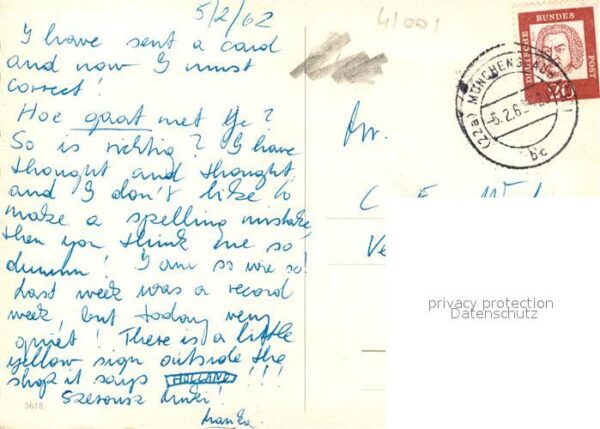 5/2/62
I have sent a card
and now I must
correct!
Hoe gaat met je?
So is richtig? I have
thought and thought
and I don't like to
make a spelling mistake,
then you think me so
dumm! I am so!
Last week was a record
week, but today very
quiet! There is a little
yellow sign outside the
shop it says HOLLAND!!!
41001
DEUTSCHE BUNDESPOST
(22a) MÜNCHENSTADB
-6.2.6
bc
privacy protection
Datenschutz
5618